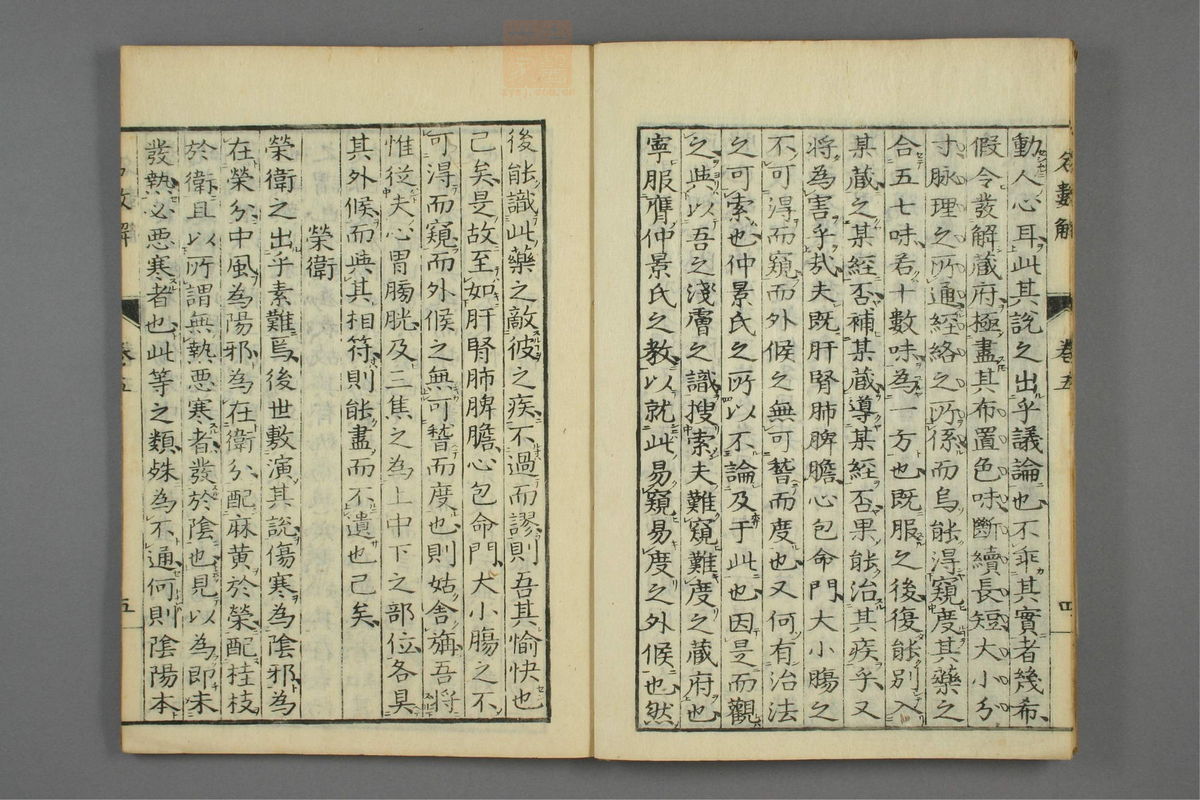 名數解 卷五 四
動人心耳此其說之出乎議論也不乖其實者幾希
假令發解藏府極盡其布置色味斷續長短大小分
寸脉理之所通經絡之所係而烏能得窺度其藥之
合五七味若十數味為一方也既服之後復能別入
某藏之某經否補某藏導某經否果能治其疾乎又
將為害乎哉夫既肝腎肺脾膽心包命門大小腸之
不可得而窺而外候之無可稽而度也又何有治法
之可索也仲景氏之所以不論及于此也因是而觀
之與以吾之淺膚之識搜索夫難窺難度之藏府也
寧服膺仲景氏之教以就此易窺易度之外候也然
後能識此藥之敵彼之疾不過而謬則吾其愉快也
已矣是故至如肝腎肺脾膽心包命門大小腸之不
可得而窺而外候之無可稽而度也則姑舍旃吾將
惟從夫心胃膓胱及三焦之為上中下之部位各具
其外候而與其相符則能盡而不遺也已矣
榮衛
榮衛之出乎素難焉後世敷演其說傷寒為陰邪為
在榮分中風為陽邪為在衛分配麻黃於榮配桂枝
於衛且以所謂無熱惡寒者發於陰也見以為即未
發熱必惡寒者也此等之類殊為不通何則陰陽本
數解 卷五 五